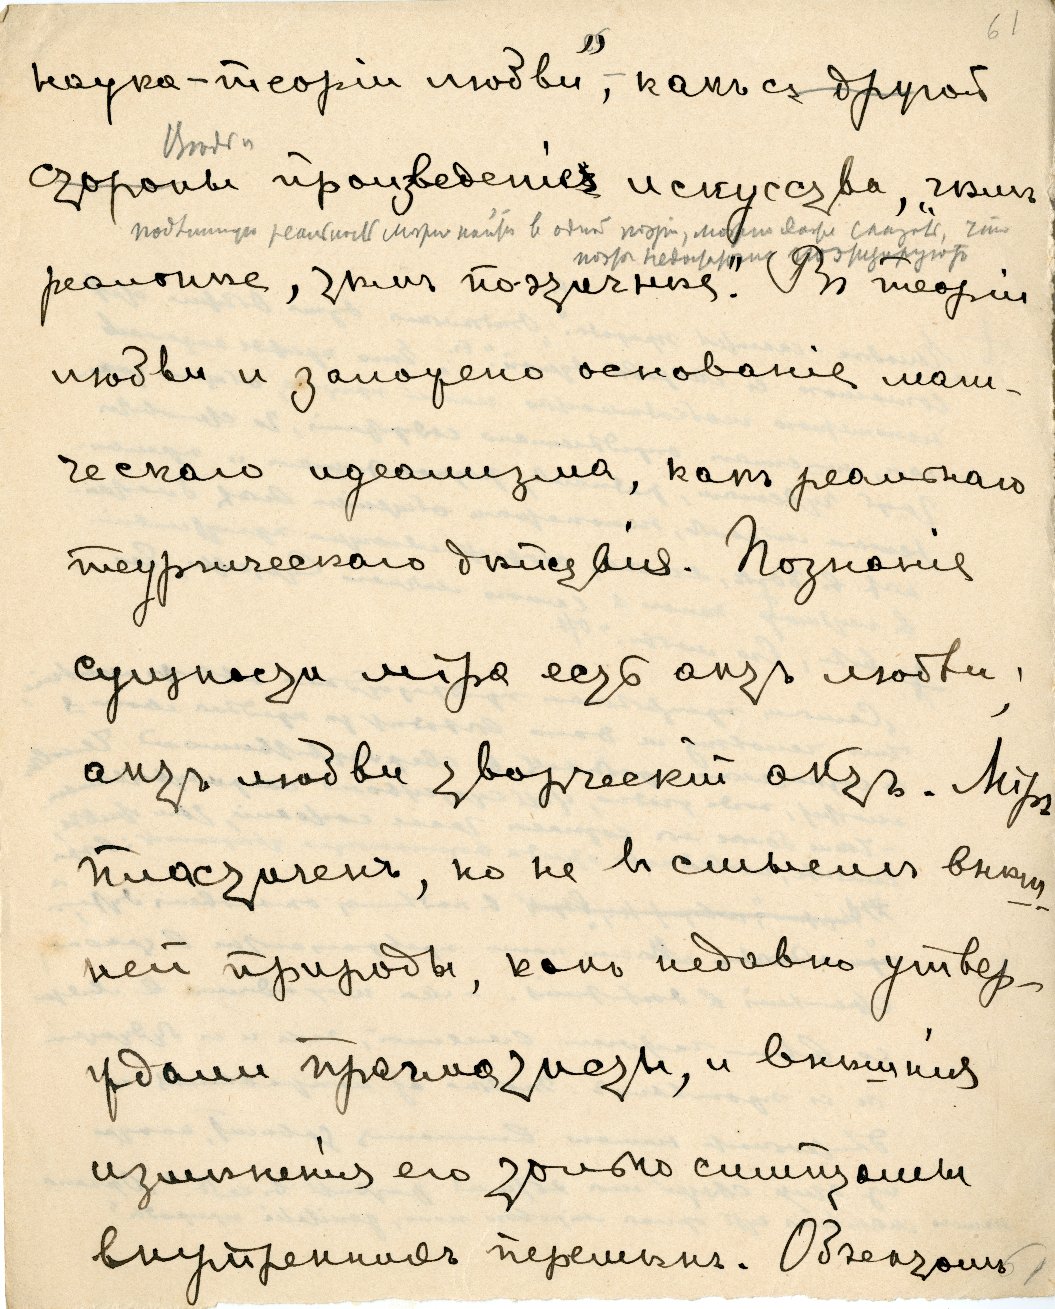 61
наука – теорія любви”, – какъ съ другой
Вводя и
стороны произведенія искусства, „чѣмъ
подлинную реальность можно найти в одной поэзіи, можно даже сказать, что
реальнѣе, тѣмъ поэтичнѣе”. Въ теоріи
любви и заложено основаніе маги-
ческаго идеализма, какъ реальнаго
теургическаго дѣйствія. Познаніе
сущности міра есть актъ любви;
актъ любви творческій актъ. Міръ
пластиченъ, но не въ смыслѣ внѣш-
ней природы, какъ недавно утвер-
ждали прагматисты, и внѣшнія
измѣненія его только симптомы
внутреннихъ перемѣнъ. Объектомъ